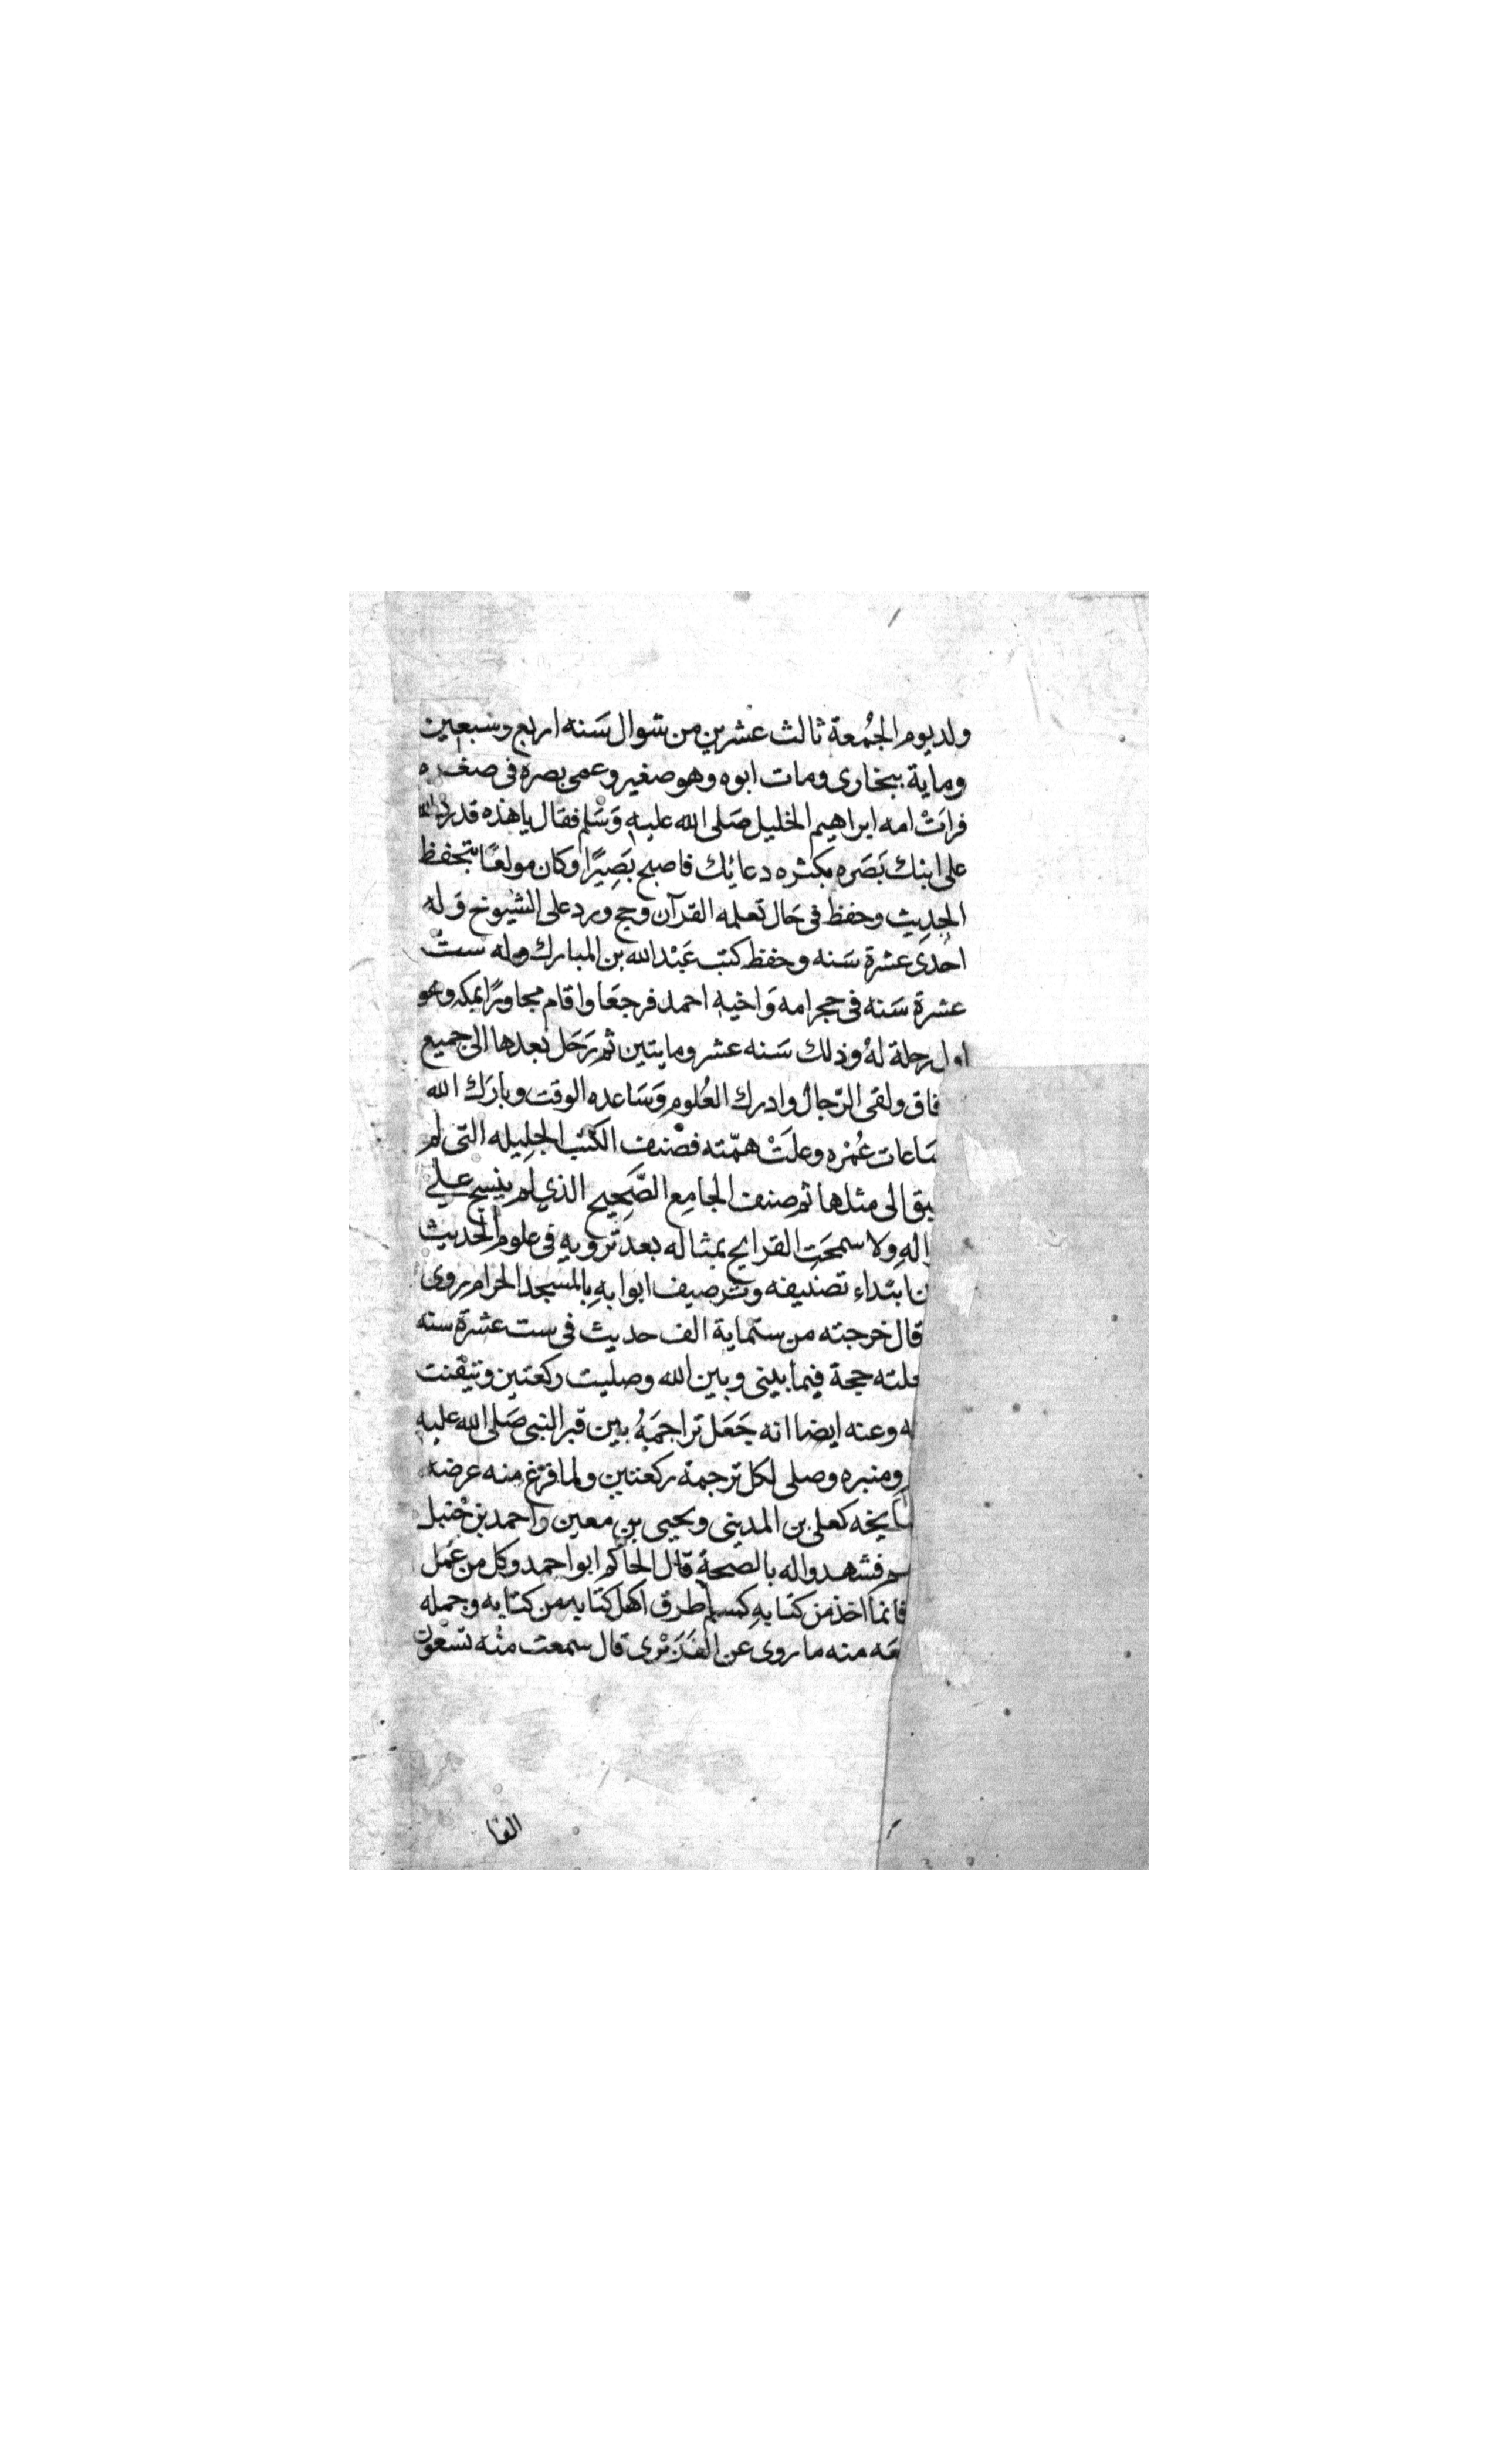 ولد يوم الجُمعة ثالث عشرين من شوال سَنه اربع وسبعين
وماية ببخارى ومات ابوه وهو صغير وعمى بصره فى صغره
فراتْ امه ابراهيم الخليل صَلى الله عليه وَسَلم فقال ياهذه قد رد الله
على ابنك بَصَره بكثره دعائِك فاصبح بَصِيرًا وكان مولعًا بتحفظ
الحديث وحفظ فى حَال تعلمه القرآن وحج ورد على الشيوخ وله
احدى عشرة سَنه وحفظ كتب عَبْد الله بن المبارك وله ستّ
عشرة سَنه فى حجر امه وَاخيه احمد فرجعَا واقام مجاورًا بمكه وهو
اول رحلة لهُ وذلك سَنه عشر ومايتين ثم رَحَل بعدها الى جميع
فاق ولقى الرّجال وادرك العُلوم وَسَاعده الوقت وبارَك الله
سَاعات عُمْره وعلتْ همّته فصْنف الكتب الجليله التى لم
بق الى مثلها ثم صنف الجامِع الصَّحِيح الذي لم ينسج على
الهِ ولا سمحَتِ القرايح بمثاله بعد تَرويهِ فى علوم الحديث
ن ابتداء تصنيفه وترصيف ابوابهِ بالمسجد الحرام روى
قال خرجته من ستماية الف حديث فى ست عشرة سنه
علته حجة فيما بينى وبين الله وصليت ركعتين وتيقنت
ه وعنه ايضا انه جَعَل تراجمَهُ بين قبر النبى صَلى الله عليه
ومنبره وصلى لكل ترجمة ركعتين ولما فرغ منه عرضه
ايخه كعلى بن المدينى ويحيى بن معين واحمد بن حنبل
هم فشهدوا له بالصحة قال الحاكم ابو احمد وكل من عَمل
فانما اخذ من كتابهِ كمسلم طرق اكثر كتابه من كتابه وجمله
عَه منه ما روى عن الفَرَبْرى قال سمعت منه تسعون
الفا